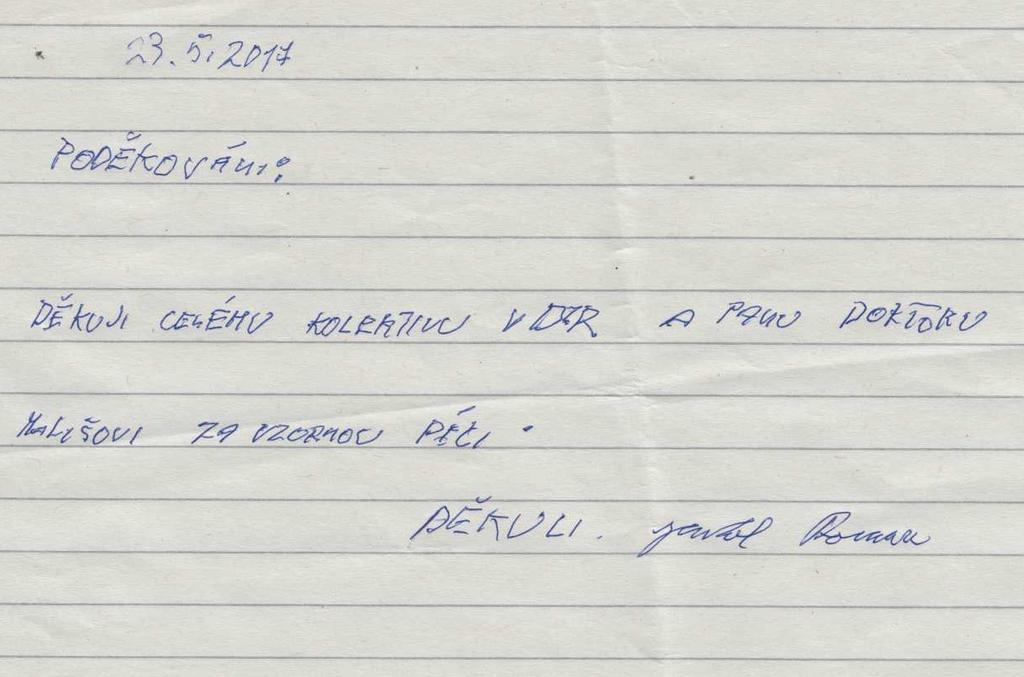 23.5.2017
PODĚKOVÁNÍ:
DĚKUJI CELÉMU KOLEKTIVU V A PANU DOKTORU
MALIŠOVI ZA VZORNOU PÉČI.
DĚKUJI. Roman